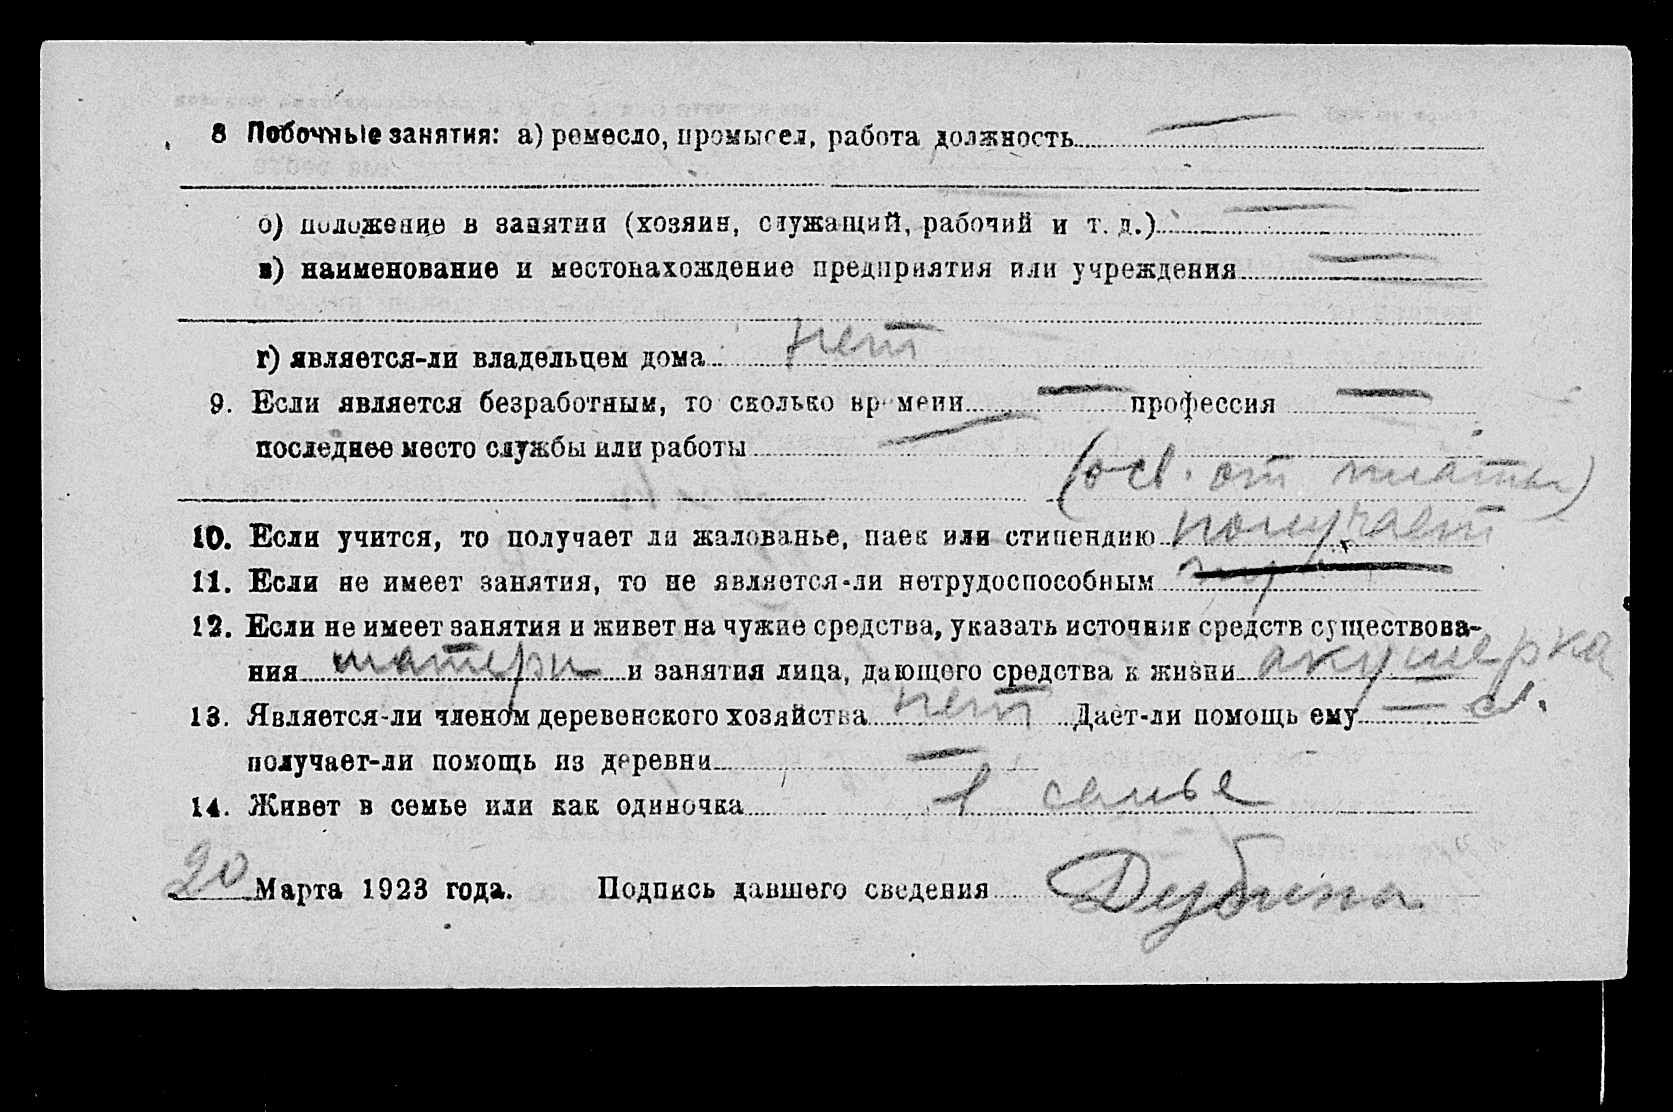 8 Побочные занятия: а) ремесло, промысел, работа должность —
б) положение в занятии (хозяин, служащий, рабочий и т. д.) —
в) наименование и местонахождение предприятия или учреждения —
г) является-ли владельцем дома нет
9. Если является безработным, то сколько времени — профессия —
последнее место службы или работы —
(осв. от платы)
10. Если учится, то получает ли жалованье, паек или стипендию получает
11. Если не имеет занятия, то не является-ли нетрудоспособным
12. Если не имеет занятия и живет на чужие средства, указать источник средств существова-
ния матери и занятия лица, дающего средства к жизни акушерка
13. Является-ли членом деревенского хозяйства нет Дает-ли помощь ему —
получает-ли помощь из деревни —
14. Живет в семье или как одиночка в семье
20 Марта 1923 года. Подпись давшего сведения Дубина